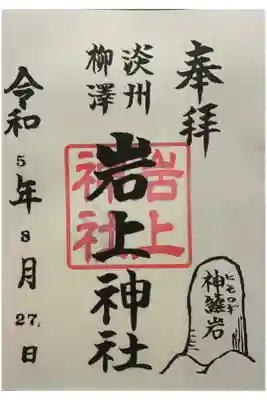 奉拝
淡州
柳澤
岩上神社
岩上
神社
令和5年8月27日
神籬岩